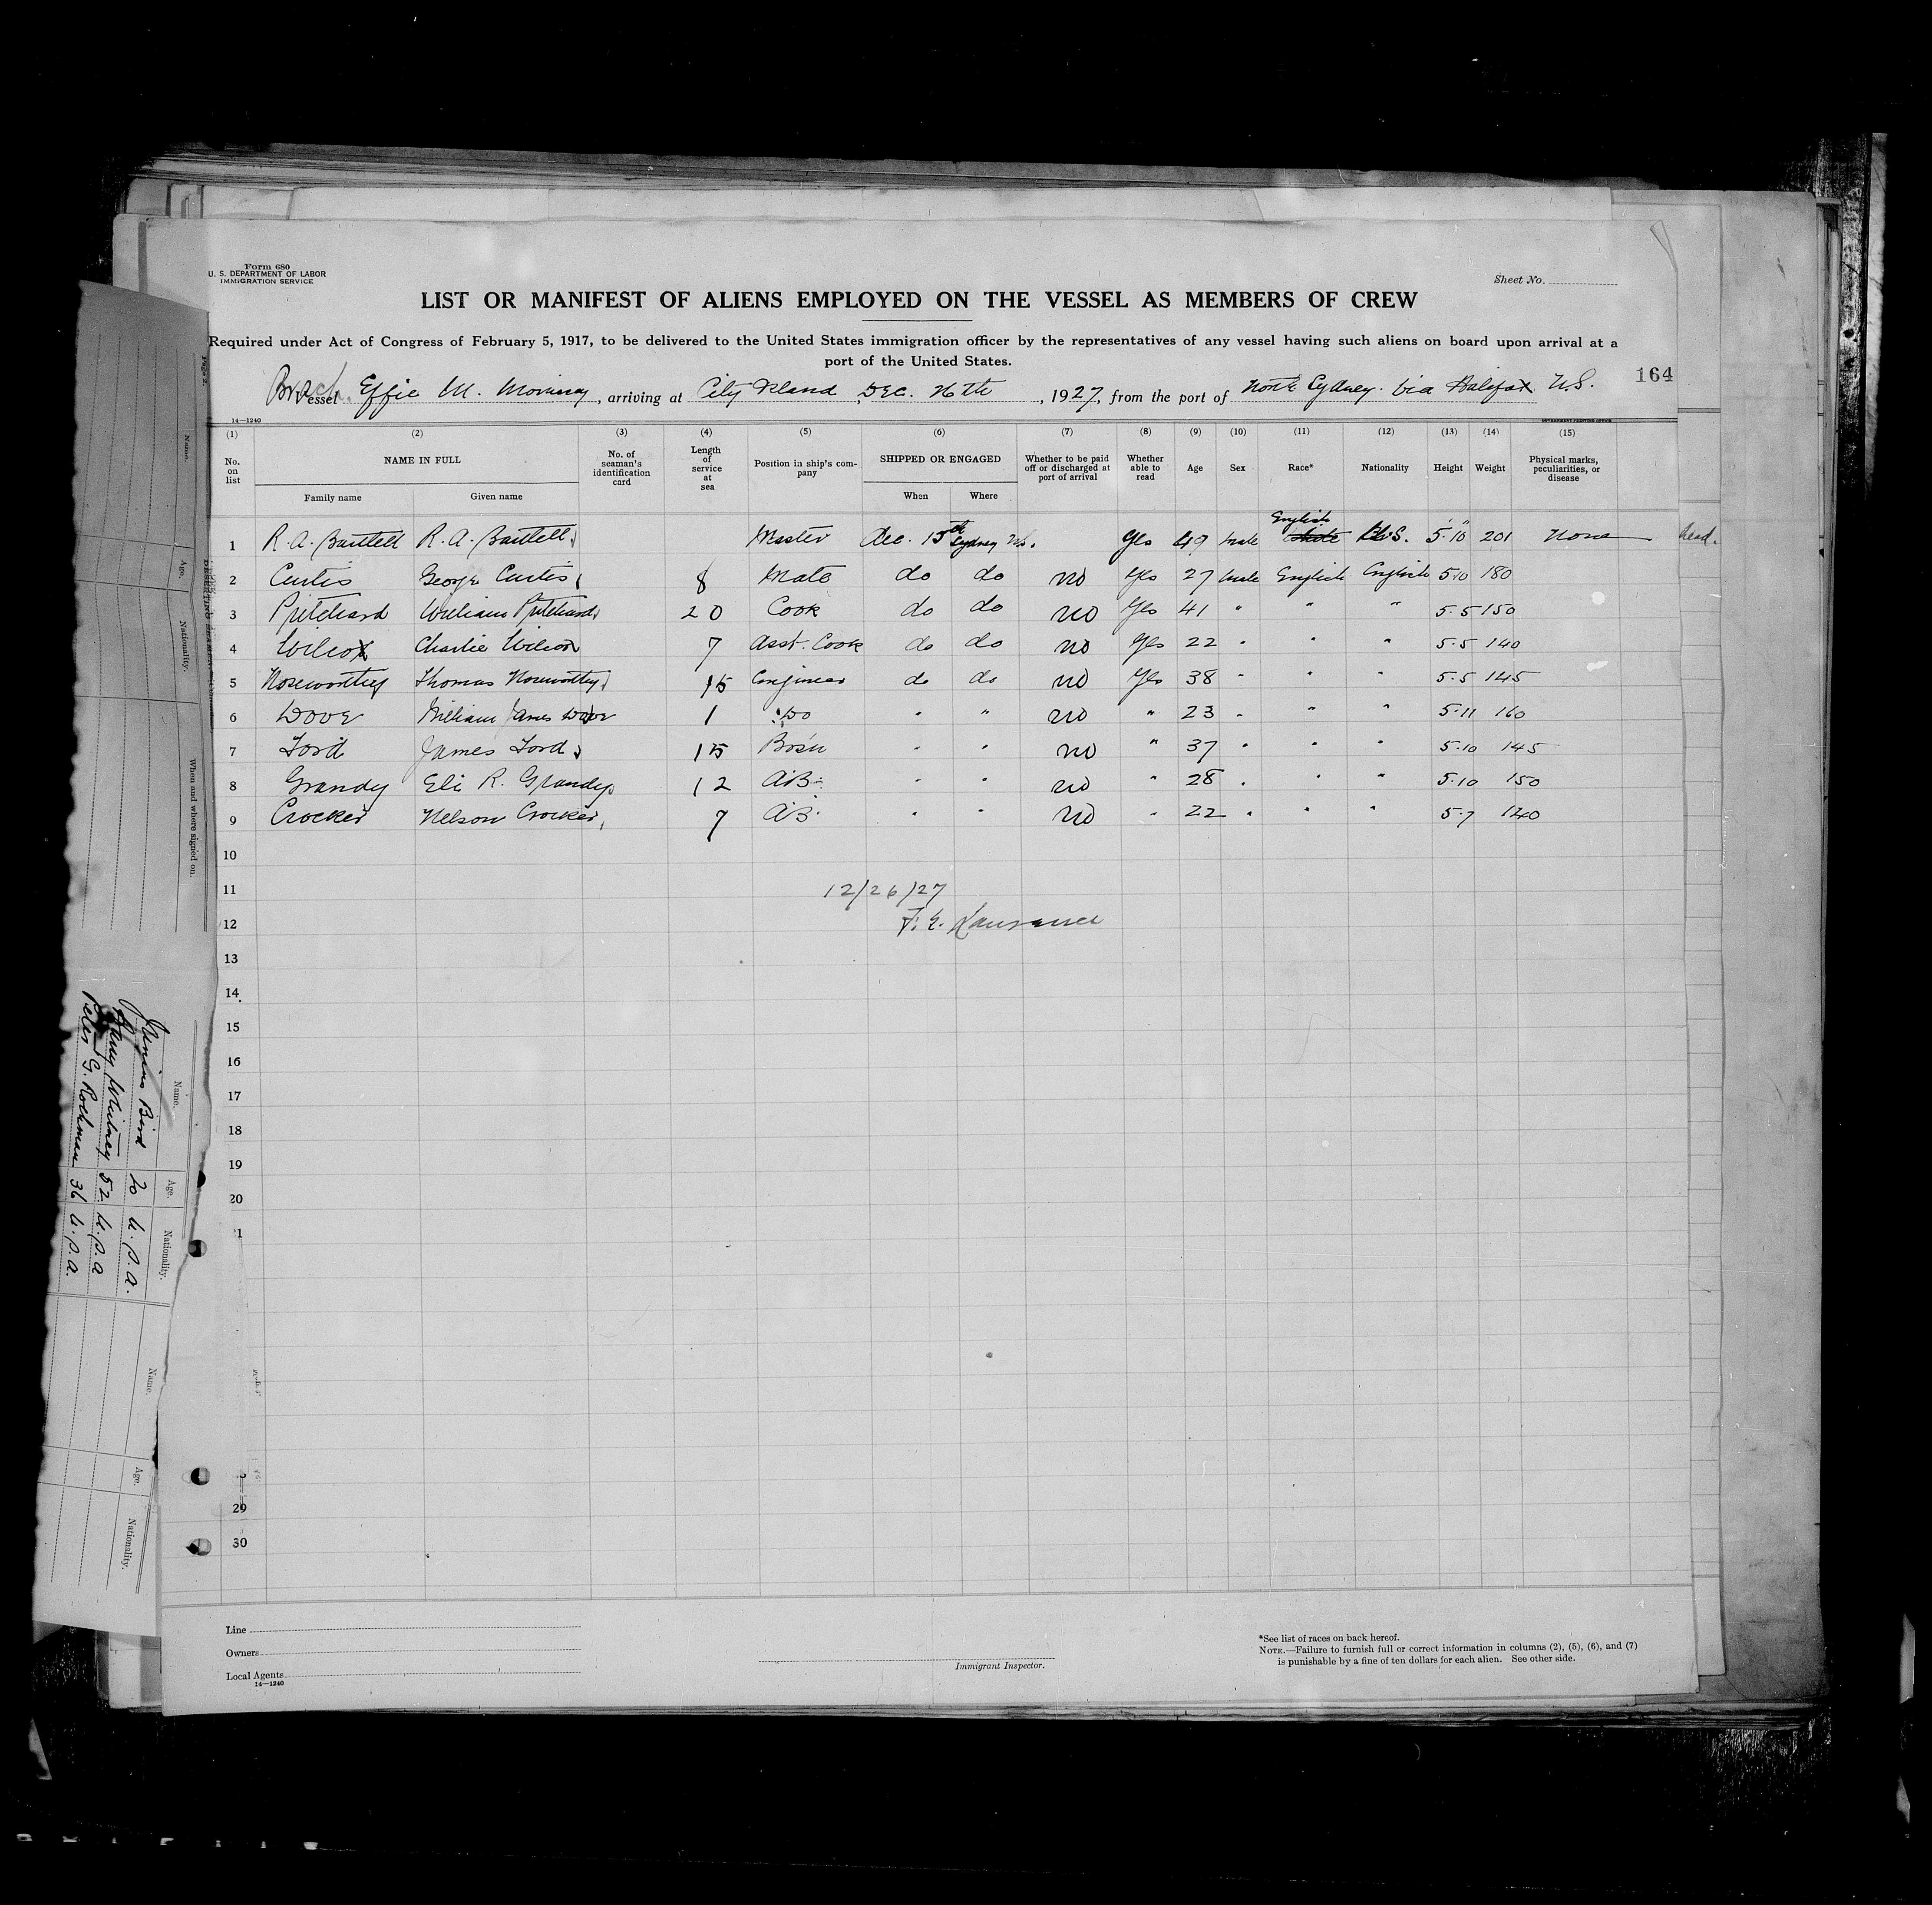 Form 680
U. S. DEPARTMENT OF LABOR
IMMIGRATION SERVICE
Sheet No.
LIST OR MANIFEST OF ALIENS EMPLOYED ON THE VESSEL AS MEMBERS OF CREW
Required under Act of Congress of February 5, 1917, to be delivered to the United States immigration officer by the representatives of any vessel having such aliens on board upon arrival at a
port of the United States.
164
Br. Sch. Vessel Effie M. Morrissey, arriving at City Island Dec. 26th, 1927, from the port of North Sydney. via Halifax N.S.
14—1240
(1) (2) (3) (4) (5) (6) (7) (8) (9) (10) (11) (12) (13) (14) (15)
No. on list NAME IN FULL No. of seaman's identification card Length of service at sea Position in ship's company SHIPPED OR ENGAGED Whether to be paid off or discharged at port of arrival Whether able to read Age Sex Race* Nationality Height Weight Physical marks, peculiarities, or disease
Family name Given name When Where
1 R. A. Bartlett R. A. Bartlett Master Dec. 15th Sydney N.S. Yes 49 Male English U.S. 5·10 201 None
2 Curtis George Curtis 8 Mate do do no Yes 27 Male English English 5·10 180
3 Pritchard William Pritchard 20 Cook do do no Yes 41 " " " 5·5 150
4 Wilcox Charlie Wilcox 7 Asst. Cook do do no Yes 22 " " " 5·5 140
5 Noseworthy Thomas Noseworthy 15 Engineer do do no Yes 38 " " " 5·5 145
6 Dove William James Dove 1 Do " " no " 23 " " " 5·11 160
7 Ford James Ford 15 Bos'n " " no " 37 " " " 5·10 145
8 Grandy Eli R. Grandy 12 A.B. " " no " 28 " " " 5·10 150
9 Crocker Nelson Crocker 7 A.B. " " no " 22 " " " 5·7 140
10
11 12/26/27
12
13
14
15
16
17
18
19
20
29
30
Line
Owners
Local Agents
14—1240
Immigrant Inspector.
*See list of races on back hereof.
NOTE.—Failure to furnish full or correct information in columns (2), (5), (6), and (7)
is punishable by a fine of ten dollars for each alien. See other side.
Name. Age. Nationality. When and where signed on.
Name. Age. Nationality.
Junius Bird 20 U.S.A.
Whitney 52 U.S.A
Peter G. Rockman 36 U.S.A.
Name. Age. Nationality.